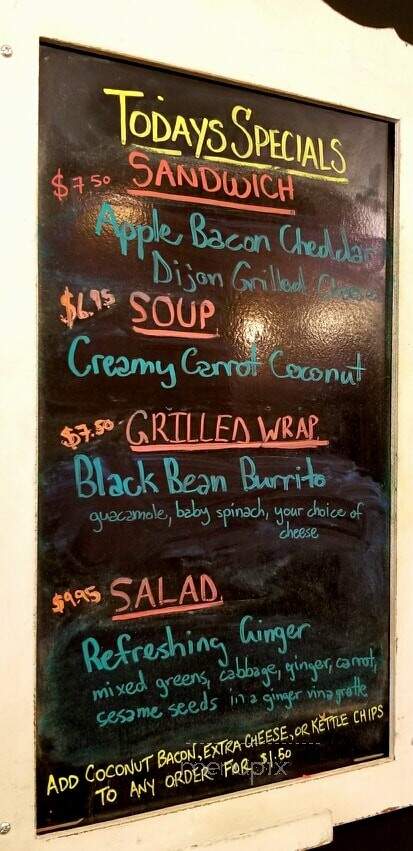 TODAYS SPECIALS
$7.50 SANDWICH
Apple Bacon Cheddar
Dijon Grilled Cheese
$6.95 SOUP
Creamy Carrot Coconut
$7.50 GRILLED WRAP
Black Bean Burrito
guacamole, baby spinach, your choice of
cheese
$9.95 SALAD
Refreshing Ginger
mixed greens, cabbage, ginger, carrot,
sesame seeds in a ginger vinagrotte
ADD COCONUT BACON, EXTRA CHEESE, OR KETTLE CHIPS
TO ANY ORDER FOR $1.50
menupix